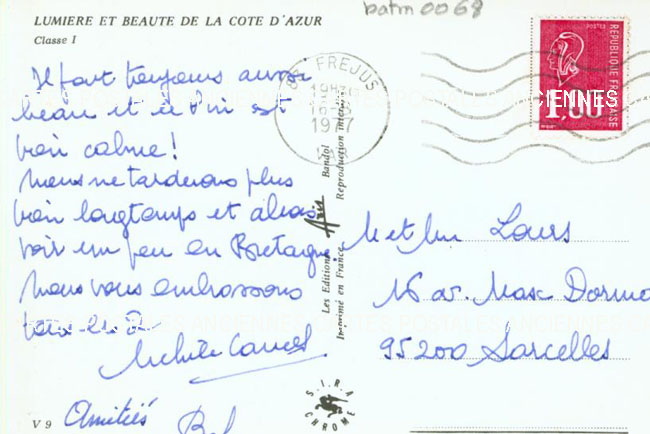 LUMIERE ET BEAUTE DE LA COTE D'AZUR
Classe I
batm 0068
Il fait toujours aussi
beau et ce n'est
bien calme!
Nous ne tarderons plus
bien longtemps et alors
voir un peu en Bretagne
Nous vous embrassons
tous les 2
Michèle
Amitiés
V 9
FREJUS
1977
REPUBLIQUE FRANÇAISE
1,00
Les Editions Bandol
Imprimé en France Reproduction interdite
S.I.R.A.
CHROME
M et Mme Louis
16 av. Marx Dormoy
95200 Sarcelles
CARTES POSTALES ANCIENNES